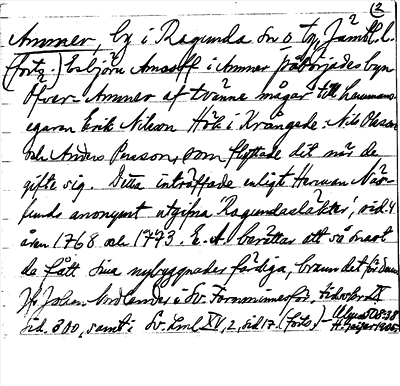 (2
Ammer, by i Ragunda sn o tg, Jämtl. l.
(forts.) Esbjörn Amcoff i Ammer påbörjades byn
Öfver-Ammer af tvänne mågar till hemmans-
egaren Erik Nilsson Hök i Krångede: Nils Olsson
och Anders Persson, som flyttade dit när de
gifte sig. Detta inträffade enligt Herman När-
lunds anonymt utgifna 'Ragundasläkter', sid. 4
åren 1768 och 1773. E. A. berättar att så snart
de fått sina nybyggnader färdiga, brann det för dem
Jfr Johan Nordlander i Sv. Fornminnesför. tidskr. IX
sid. 300, samt i Sv. Lml XV, 2, sid 17. (forts.) – 508:38
H. Geijer 1905